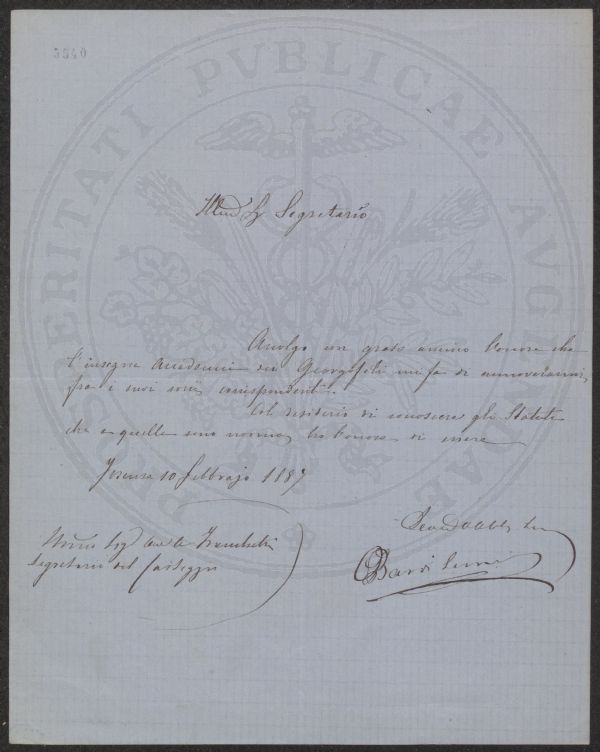 5540
PROSPERITATI PVBLICAE AVGENDAE
Segretario
Accolgo con grato animo l'onore che
l'insigne Accademia dei Georgofili mi fa di annoverarmi
fra i suoi socii corrispondenti.
Col desiderio di conoscere gli Statuti
che a quella sono norma, ho l'onore di essere
10 Febbrajo 1887
Segretario del Carteggio
Bardi